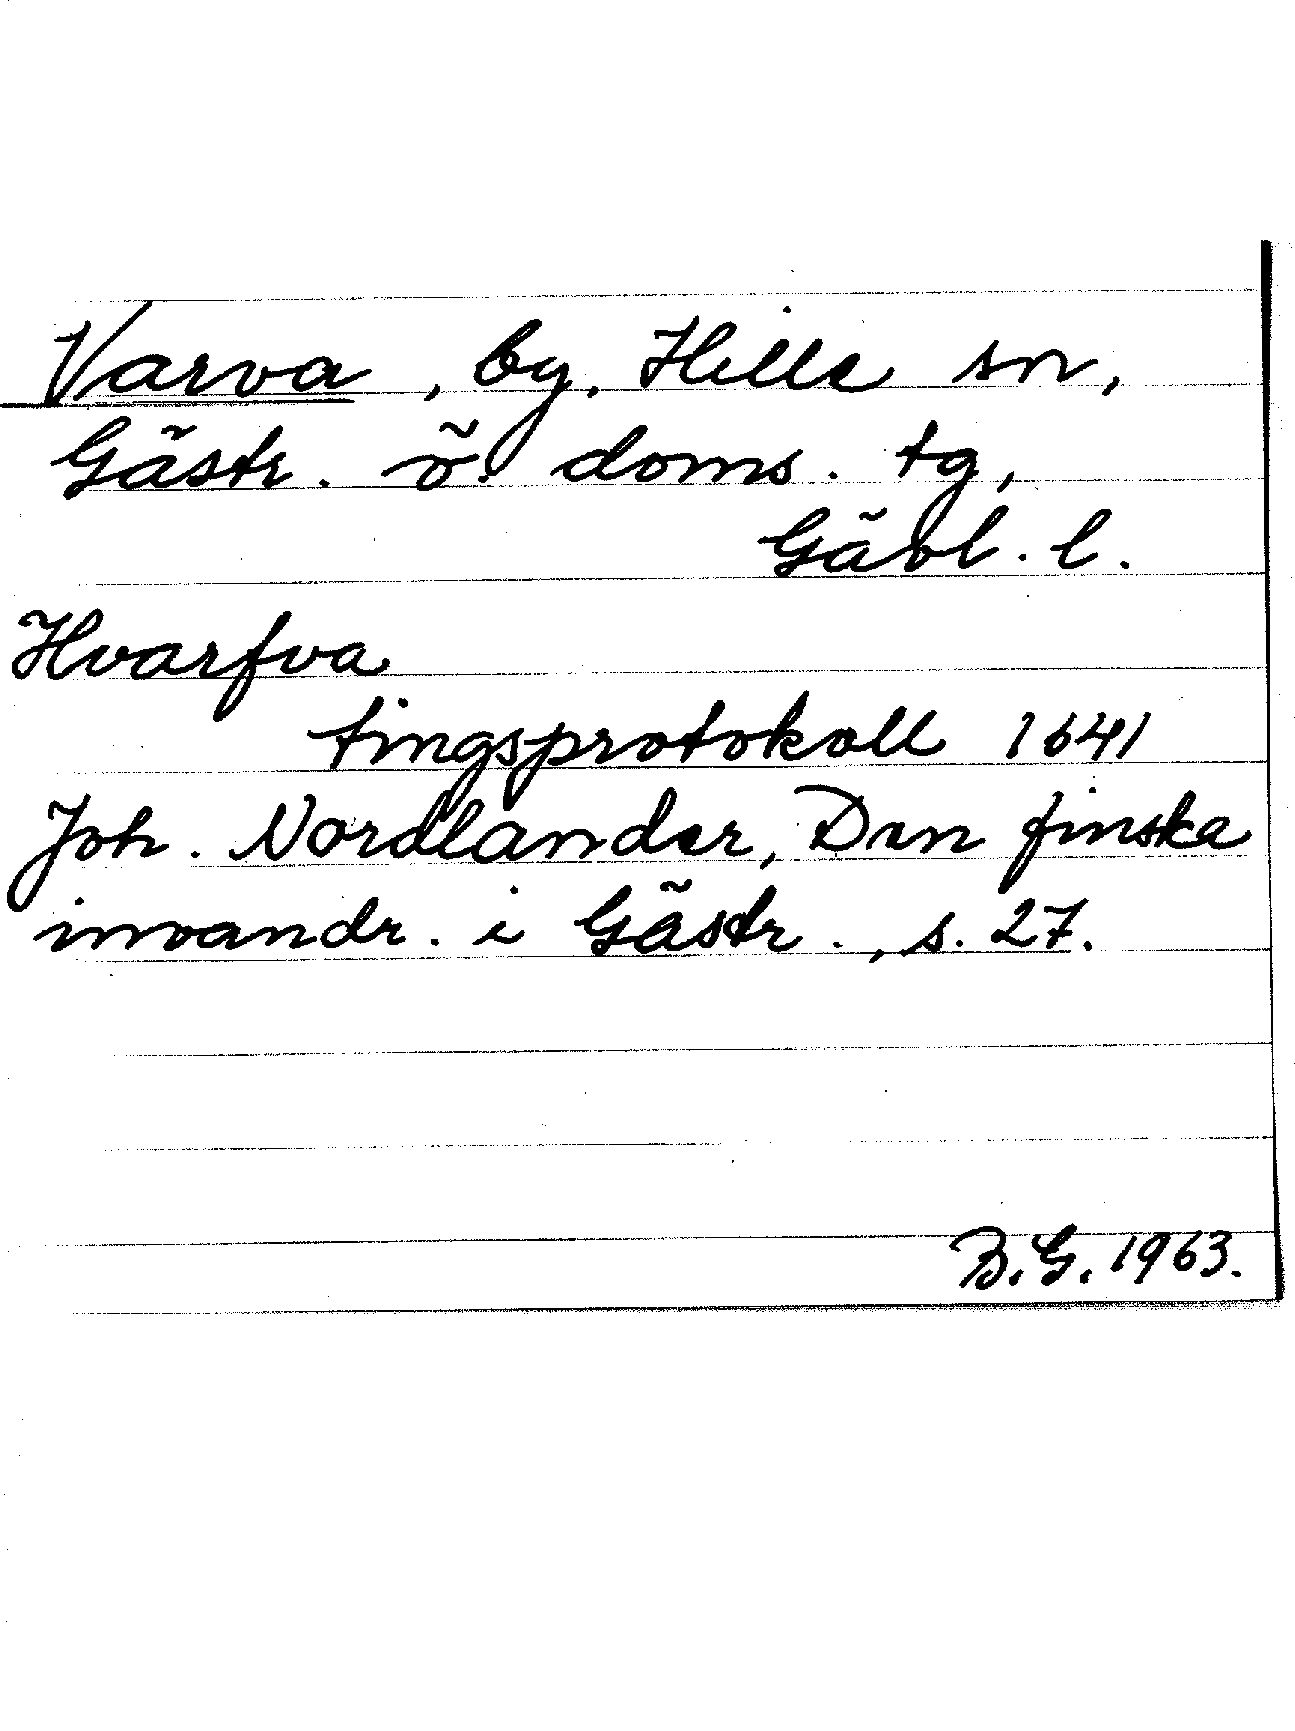 Varva, by, Hille sn,
Gästr. ö. doms. tg,
Gävl. l.
Hvarfva
tingsprotokoll 1641
Joh. Nordlander, Den finska
invandr. i Gästr., s. 27.
B.G. 1963.